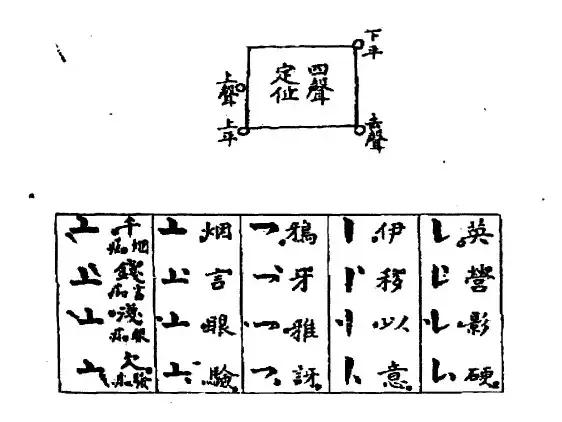 四聲
定位
下平
上聲
上平
去聲
英 營 影 硬
伊 移 以 意
鴉 牙 雅 訝
烟 言 眼 驗
千 烟
錢 言
淺 眼
欠 驗